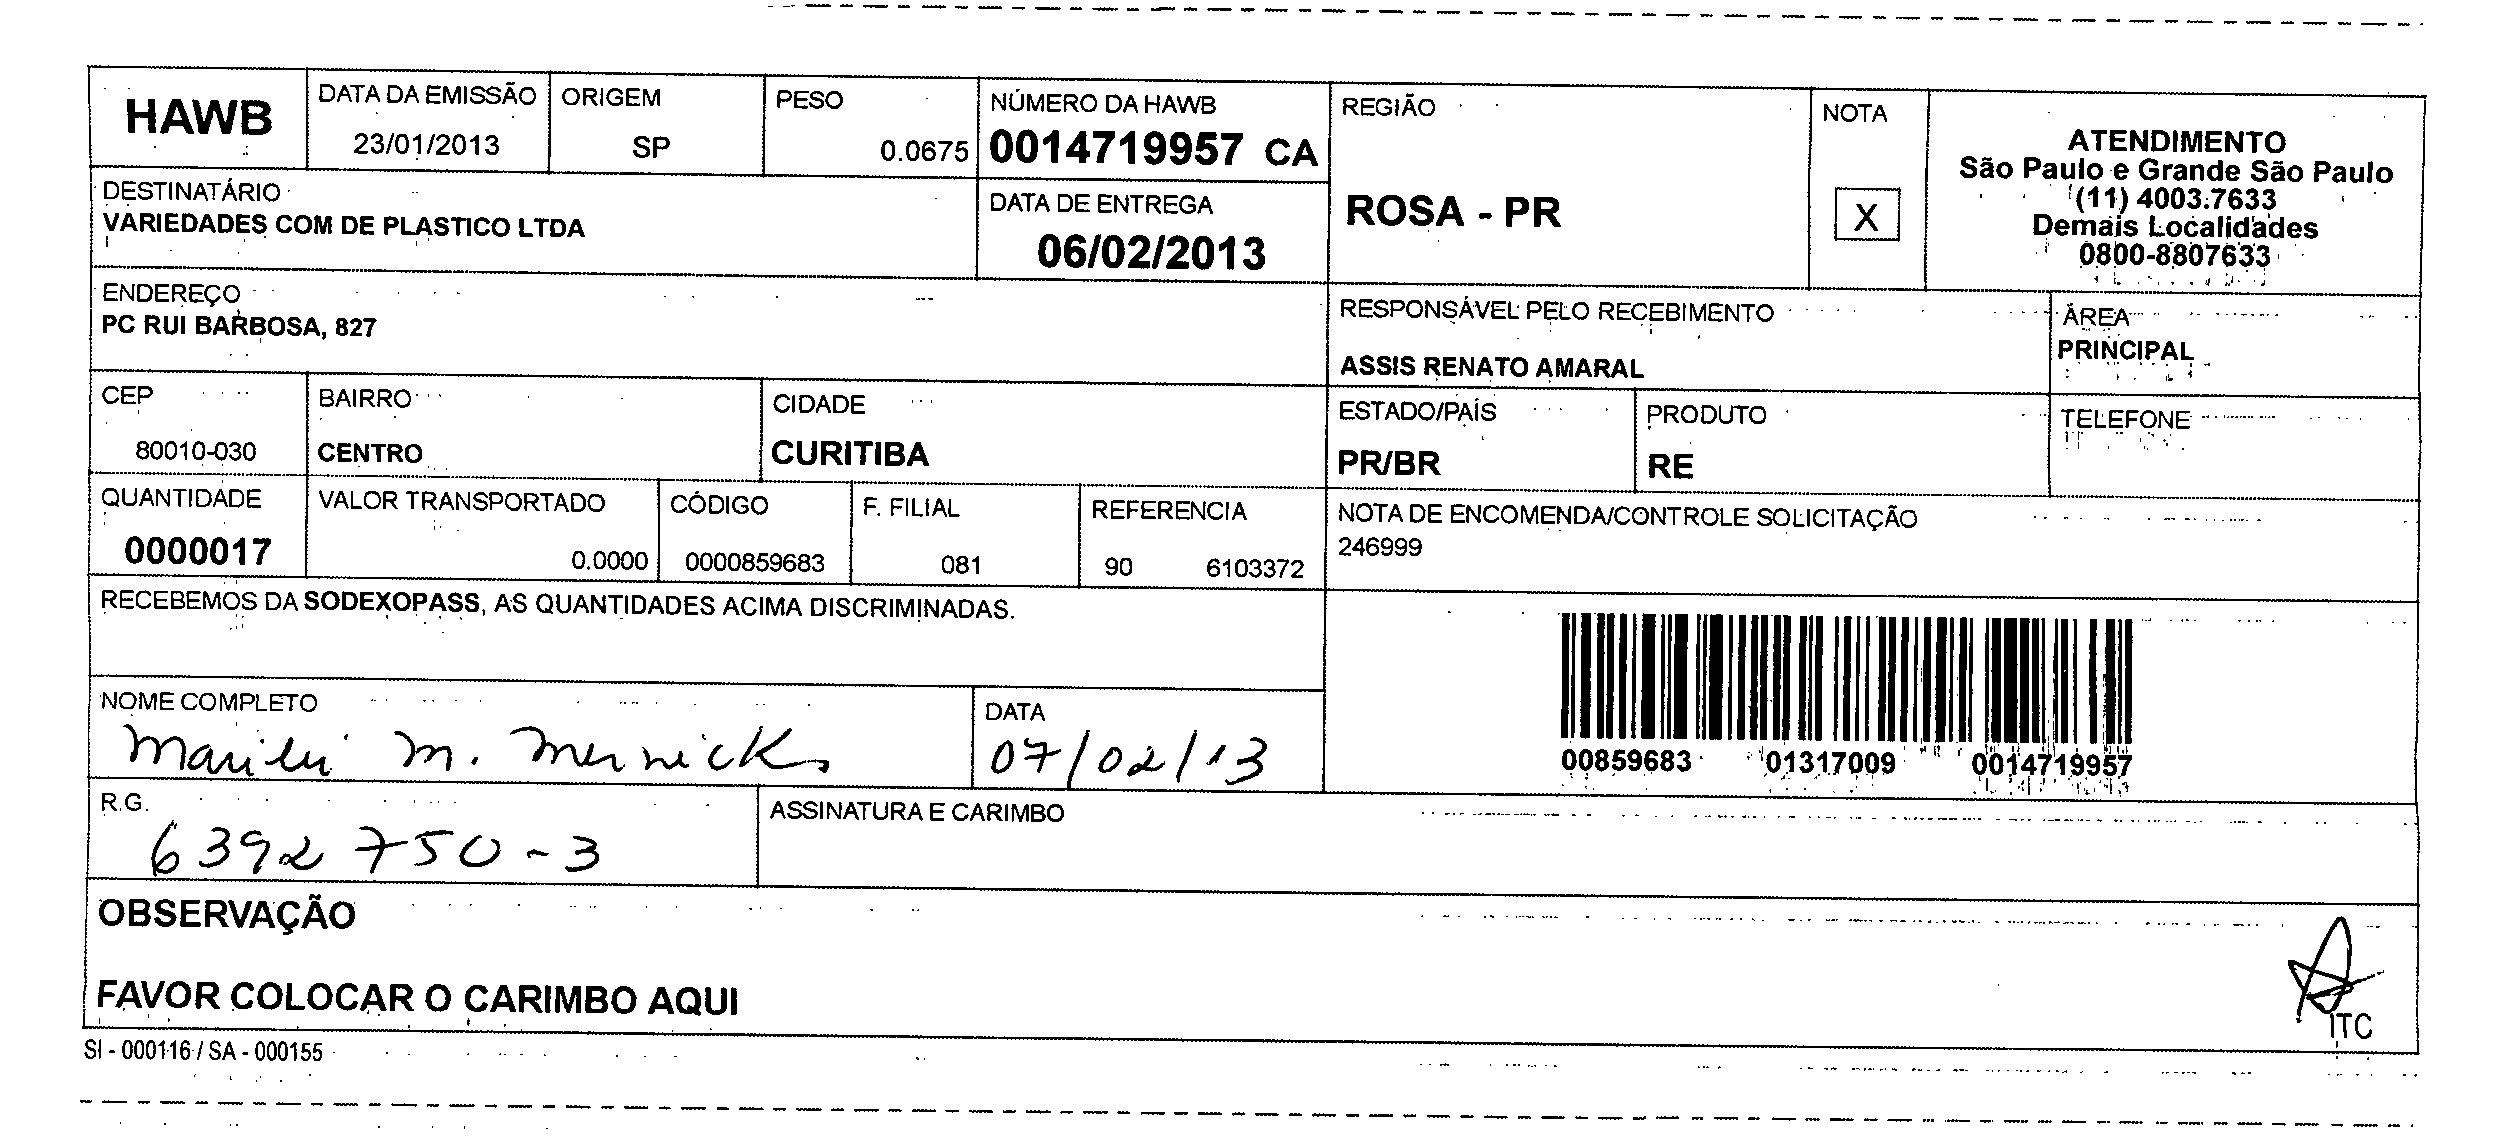 HAWB
DATA DA EMISSÃO
23/01/2013
ORIGEM
SP
PESO
0.0675
NÚMERO DA HAWB
0014719957 CA
REGIÃO
ROSA - PR
NOTA
X
ATENDIMENTO
São Paulo e Grande São Paulo
(11) 4003.7633
Demais Localidades
0800-8807633
DESTINATÁRIO
VARIEDADES COM DE PLASTICO LTDA
DATA DE ENTREGA
06/02/2013
ENDEREÇO
PC RUI BARBOSA, 827
RESPONSÁVEL PELO RECEBIMENTO
ASSIS RENATO AMARAL
ÁREA
PRINCIPAL
CEP
80010-030
BAIRRO
CENTRO
CIDADE
CURITIBA
ESTADO/PAÍS
PR/BR
PRODUTO
RE
TELEFONE
QUANTIDADE
0000017
VALOR TRANSPORTADO
0.0000
CÓDIGO
0000859683
F. FILIAL
081
REFERENCIA
90 6103372
NOTA DE ENCOMENDA/CONTROLE SOLICITAÇÃO
246999
RECEBEMOS DA SODEXOPASS, AS QUANTIDADES ACIMA DISCRIMINADAS.
00859683 01317009 0014719957
NOME COMPLETO
M.
DATA
07/02/13
R.G.
6392750-3
ASSINATURA E CARIMBO
OBSERVAÇÃO
FAVOR COLOCAR O CARIMBO AQUI
ITC
SI - 000116 / SA - 000155